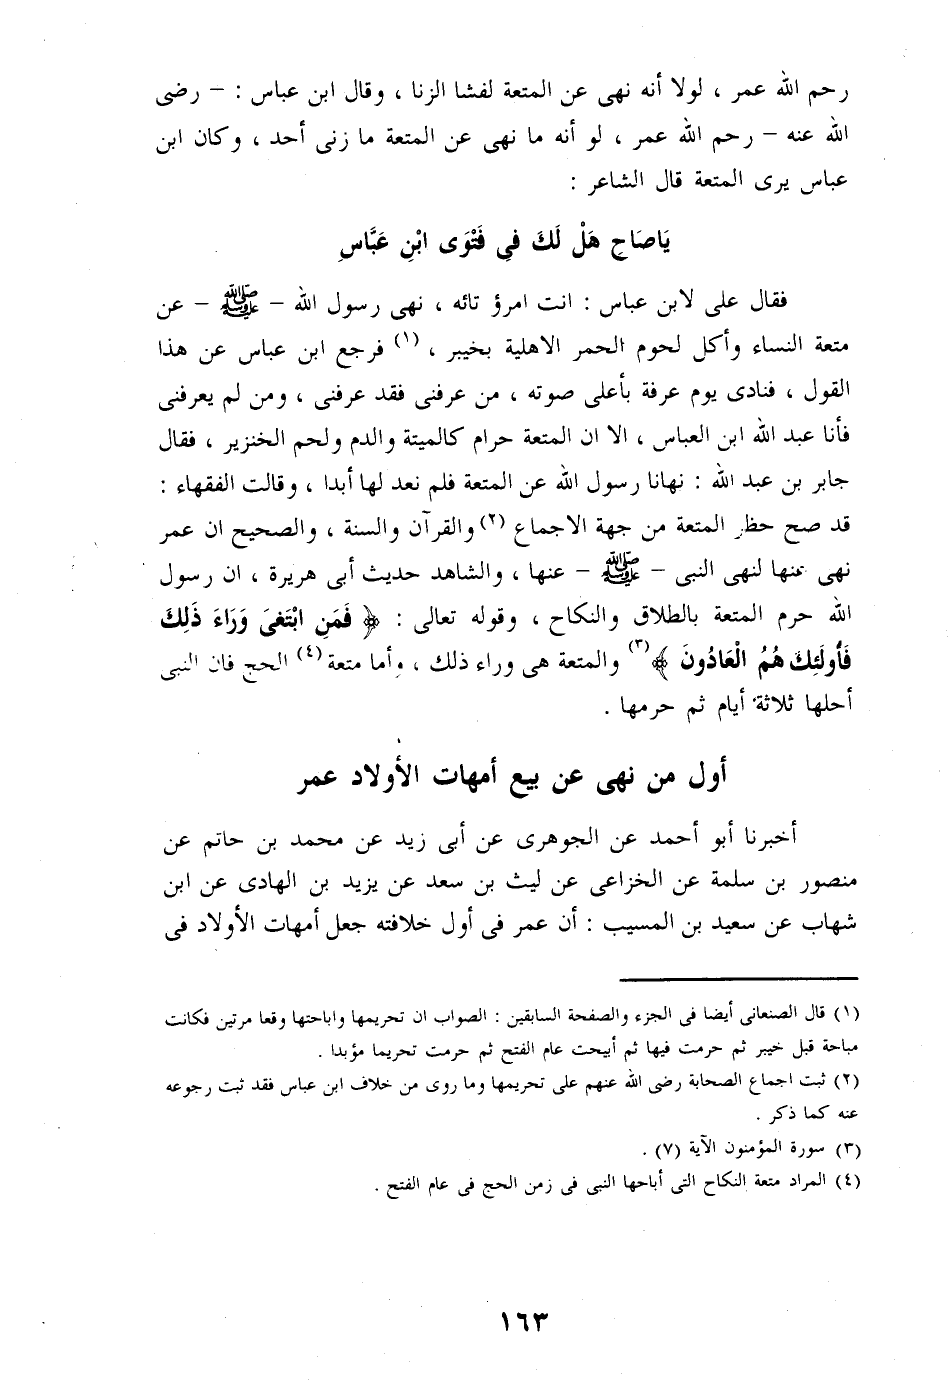 رحم الله عمر ، لولا أنه نهى عن المتعة لفشا الزنا ، وقال ابن عباس : – رضى
الله عنه – رحم الله عمر ، لو أنه ما نهى عن المتعة ما زنى أحد ، وكان ابن
عباس يرى المتعة قال الشاعر :
يَاصَاحِ هَلْ لَكَ فِي فَتْوَى ابْنِ عَبَّاسِ
فقال على لابن عباس : انت امرؤ تائه ، نهى رسول الله – ﷺ – عن
متعة النساء وأكل لحوم الحمر الاهلية بخيبر ، (١) فرجع ابن عباس عن هذا
القول ، فنادى يوم عرفة بأعلى صوته ، من عرفنى فقد عرفنى ، ومن لم يعرفنى
فأنا عبد الله ابن العباس ، الا ان المتعة حرام كالميتة والدم ولحم الخنزير ، فقال
جابر بن عبد الله : نهانا رسول الله عن المتعة فلم نعد لها أبدا ، وقالت الفقهاء :
قد صح حظر المتعة من جهة الاجماع (٢) والقرآن والسنة ، والصحيح ان عمر
نهى عنها لنهى النبى – ﷺ – عنها ، والشاهد حديث أبى هريرة ، ان رسول
الله حرم المتعة بالطلاق والنكاح ، وقوله تعالى : ﴿ فَمَنِ ابْتَغَىَ وَرَاءَ ذَلِكَ
فَأولَئِكَ هُمُ الْعَادُونَ ﴾ (٣) والمتعة هى وراء ذلك ، وأما متعة (٤) الحج فان النبى
أحلها ثلاثة أيام ثم حرمها .
أول من نهى عن بيع أمهات الأولاد عمر
أخبرنا أبو أحمد عن الجوهرى عن أبى زيد عن محمد بن حاتم عن
منصور بن سلمة عن الخزاعى عن ليث بن سعد عن يزيد بن الهادى عن ابن
شهاب عن سعيد بن المسيب : أن عمر فى أول خلافته جعل أمهات الأولاد فى
(١) قال الصنعانى أيضا فى الجزء والصفحة السابقين : الصواب ان تحريمها واباحتها وقعا مرتين فكانت
مباحة قبل خيبر ثم حرمت فيها ثم أبيحت عام الفتح ثم حرمت تحريما مؤبدا .
(٢) ثبت اجماع الصحابة رضى الله عنهم على تحريمها وما روى من خلاف ابن عباس فقد ثبت رجوعه
عنه كما ذكر .
(٣) سورة المؤمنون الآية (٧) .
(٤) المراد متعة النكاح التى أباحها النبى فى زمن الحج فى عام الفتح .
١٦٣